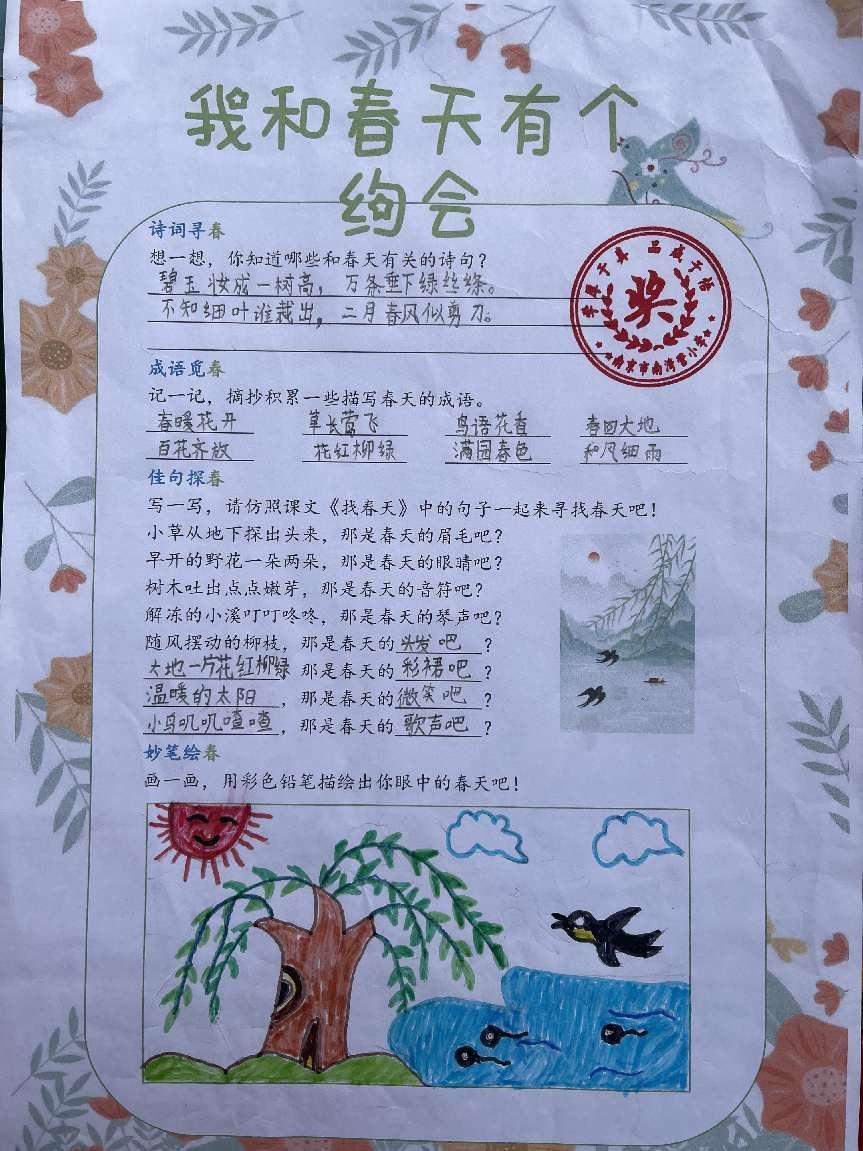 我和春天有个
绚会
诗词寻春
想一想，你知道哪些和春天有关的诗句？
碧玉妆成一树高，万条垂下绿丝绦。
不知细叶谁裁出，二月春风似剪刀。
学厚于真 品成于格
奖
南京市南湾营小学
成语觅春
记一记，摘抄积累一些描写春天的成语。
春暖花开 草长莺飞 鸟语花香 春回大地
百花齐放 花红柳绿 满园春色 和风细雨
佳句探春
写一写，请仿照课文《找春天》中的句子一起来寻找春天吧！
小草从地下探出头来，那是春天的眉毛吧？
早开的野花一朵两朵，那是春天的眼睛吧？
树木吐出点点嫩芽，那是春天的音符吧？
解冻的小溪叮叮咚咚，那是春天的琴声吧？
随风摆动的柳枝，那是春天的头发吧？
大地一片花红柳绿 那是春天的彩裙吧？
温暖的太阳，那是春天的微笑吧？
小鸟叽叽喳喳，那是春天的歌声吧？
妙笔绘春
画一画，用彩色铅笔描绘出你眼中的春天吧！